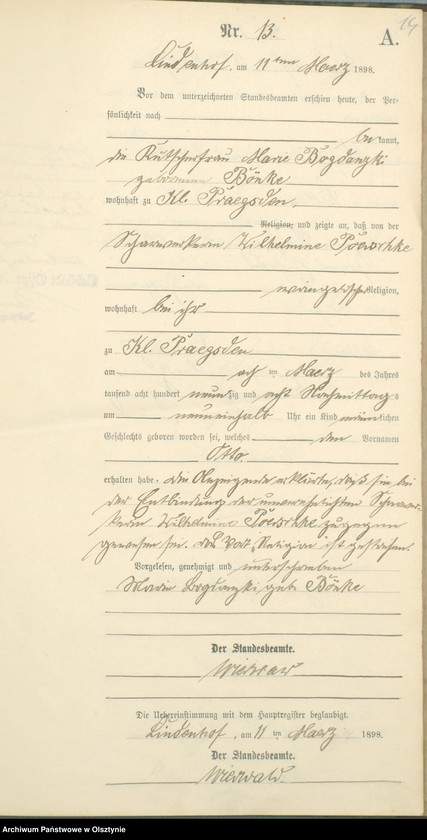 14
Nr. 13.
A.
Lindenhof, am 11 ten Maerz 1898.
Vor dem unterzeichneten Standesbeamten erschien heute, der Per-
sönlichkeit nach
bekannt,
die Kutscherfrau Marie Bogdanzki
geborene Bönke
wohnhaft zu Kl. Praegsden
Religion, und zeigte an, daß von der
Scharwerkerin Wilhelmine Poerschke
evangelischer Religion,
wohnhaft bei ihr
zu Kl. Praegsden
am acht ten Maerz des Jahres
tausend acht hundert neunzig und acht Nachmittags
um neuneinhalb Uhr ein Kind männlichen
Geschlechts geboren worden sei, welches den Vornamen
Otto
erhalten habe. die Anzeigende erklärte, daß sie bei
der Entbindung der unverehelichten Scharwer-
kerin Wilhelmine Poerschke zugegen
gewesen sei. Das Wort „Religion ist gestrichen.
Vorgelesen, genehmigt und unterschrieben
Marie Bogdanzki geb. Bönke
Der Standesbeamte.
Die Uebereinstimmung mit dem Hauptregister beglaubigt.
Lindenhof, am 11 ten Maerz 1898.
Der Standesbeamte.
Archiwum Państwowe w Olsztynie